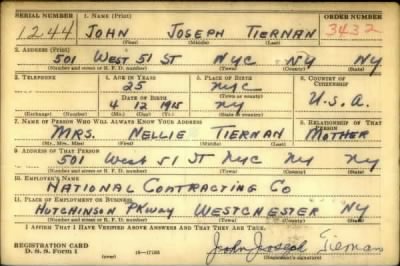 SERIAL NUMBER 1. NAME (Print) ORDER NUMBER
1244 JOHN JOSEPH TIERNAN 3432
(First) (Middle) (Last)
2. ADDRESS (Print)
501 WEST 51 ST NYC NY NY
(Number and street or R. F. D. number) (Town) (County) (State)
3. TELEPHONE 4. AGE IN YEARS 5. PLACE OF BIRTH 6. COUNTRY OF CITIZENSHIP
25 NYC
(Town or county)
DATE OF BIRTH
4 12 1915 NY U.S.A.
(Exchange) (Number) (Mo.) (Day) (Yr.) (State or country)
7. NAME OF PERSON WHO WILL ALWAYS KNOW YOUR ADDRESS 8. RELATIONSHIP OF THAT PERSON
MRS. NELLIE TIERNAN MOTHER
(Mr., Mrs., Miss) (First) (Middle) (Last)
9. ADDRESS OF THAT PERSON
501 West 51 ST NYC NY NY
(Number and street or R. F. D. number) (Town) (County) (State)
10. EMPLOYER'S NAME
NATIONAL CONTRACTING CO
11. PLACE OF EMPLOYMENT OR BUSINESS
HUTCHINSON PKWAY WESTCHESTER NY
(Number and street or R. F. D. number) (Town) (County) (State)
I AFFIRM THAT I HAVE VERIFIED ABOVE ANSWERS AND THAT THEY ARE TRUE.
REGISTRATION CARD
D. S. S. Form 1 (over) 16—17105 John Joseph Tiernan
(Registrant's signature)